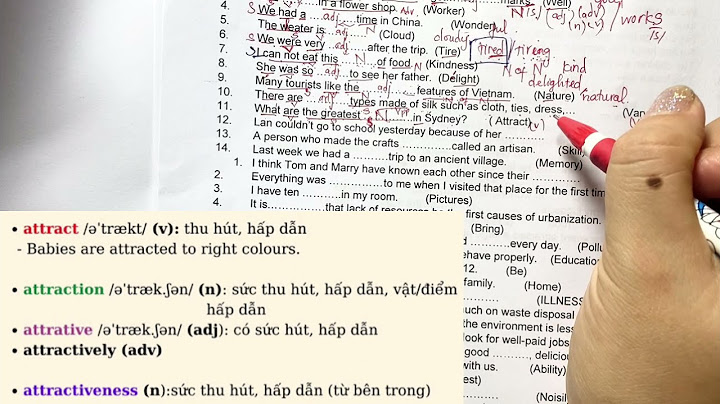 marks. (Well)
4. ............in a flower shop. Adv. (Worker) N /s/ (adj) (adv) (n) (v) / works /s/
5. S We had a ....adj....time in China. (Wonder) ful
The weater is ....adj.... (Cloud) cloudy
6. S We were very ....adj......after the trip. (Tire) tired / tireng
7. S I can not eat this ....N.... of food. (Kindness) N of N kind
8. She was so ...adj...to see her father. (Delight) delighted
9. Many tourists like the ...adj...... features of Vietnam. (Nature) natural
10. There are ...adj...types made of silk such as cloth, ties, dress,... (Var
11. What are the greatest ...N... in Sydney? (Attract) (v)
12. Lan couldn't go to school yesterday because of her .............
13. A person who made the crafts ...............called an artisan. (Skill
14. Last week we had a ...........trip to an ancient village. (Memory)
1. I think Tom and Marry have known each other since their .............
2. Everything was ...............to me when I visited that place for the first tim
3. I have ten ...........in my room. (Pictures)
4. It is...............that lack of resources first causes of urbanization.
(Bring)
...........every day. (Pollu
ehave properly. (Education
12. (Be)
family. (Home)
(ILLNESS
uch on waste disposal
the environment is less
look for well-paid jobs
good .........., deliciou
with us. (Ability)
est)
(Noisil
• attract /ə'trækt/ (v): thu hút, hấp dẫn
- Babies are attracted to right colours.
• attraction /ə'træk.ʃən/ (n): sức thu hút, hấp dẫn, vật/điểm
hấp dẫn
• attrative /ə'træk.ʃən/ (adj): có sức hút, hấp dẫn
• attractively (adv)
• attractiveness (n):sức thu hút, hấp dẫn (từ bên trong)